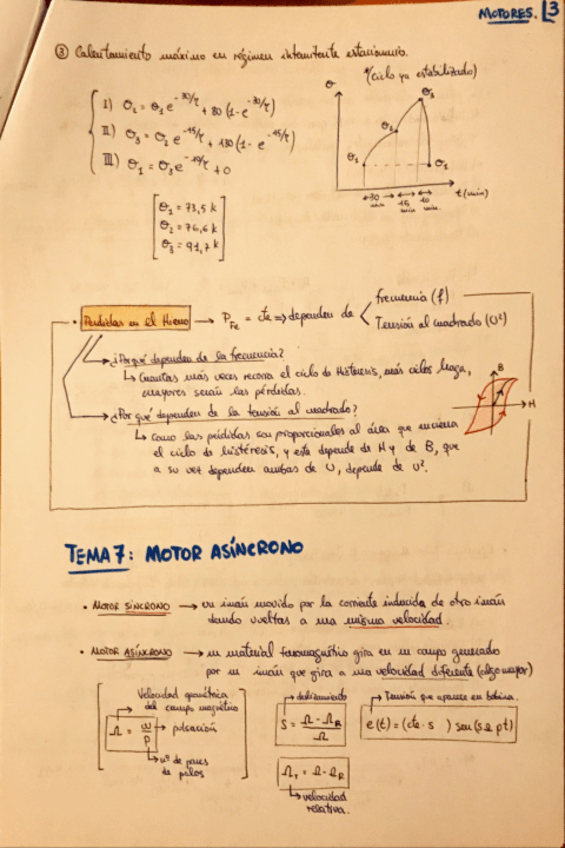 MOTORES. 3
③ Calentamiento máximo en régimen intermitente estacionario.
I) θ₂ = θ₁ e^(-30/τ) + 80 (1-e^(-30/τ))
II) θ₃ = θ₂ e^(-15/τ) + 130 (1-e^(-15/τ))
III) θ₁ = θ₃ e^(-10/τ) + 0
(ciclo ya estabilizado)
θ
θ₃
θ₂
θ₁ θ₁
30 min 15 min 10 min.
t (min)
θ₁ = 73,5 k
θ₂ = 76,6 k
θ₃ = 91,7 k
• Pérdidas en el Hierro → P_Fe = cte ⇒ dependen de
frecuencia (f)
Tensión al cuadrado (U²)
→ ¿Por qué dependen de la frecuencia?
↳ Cuantas más veces recorra el ciclo de Histéresis, más ciclos haga,
mayores serán las pérdidas.
B
H
→ ¿Por qué dependen de la tensión al cuadrado?
↳ como las pérdidas son proporcionales al área que encierra
el ciclo de histéresis, y este depende de H y de B, que
a su vez dependen ambas de U, depende de U².
TEMA 7: MOTOR ASÍNCRONO
• MOTOR SÍNCRONO → un imán movido por la corriente inducida de otro imán
dando vueltas a una misma velocidad.
• MOTOR ASÍNCRONO → un material ferromagnético gira en un campo generado
por un imán que gira a una velocidad diferente (algo mayor)
Velocidad geométrica
del campo magnético
Ω = ω/p
→ pulsación
→ nº de pares
de polos
→ deslizamiento
S = (Ω - Ω_R)/Ω
Ω_r = Ω - Ω_R
↳ velocidad
relativa.
→ Tensión que aparece en bobina.
e(t) = (cte · s ) sen (s Ω p t)